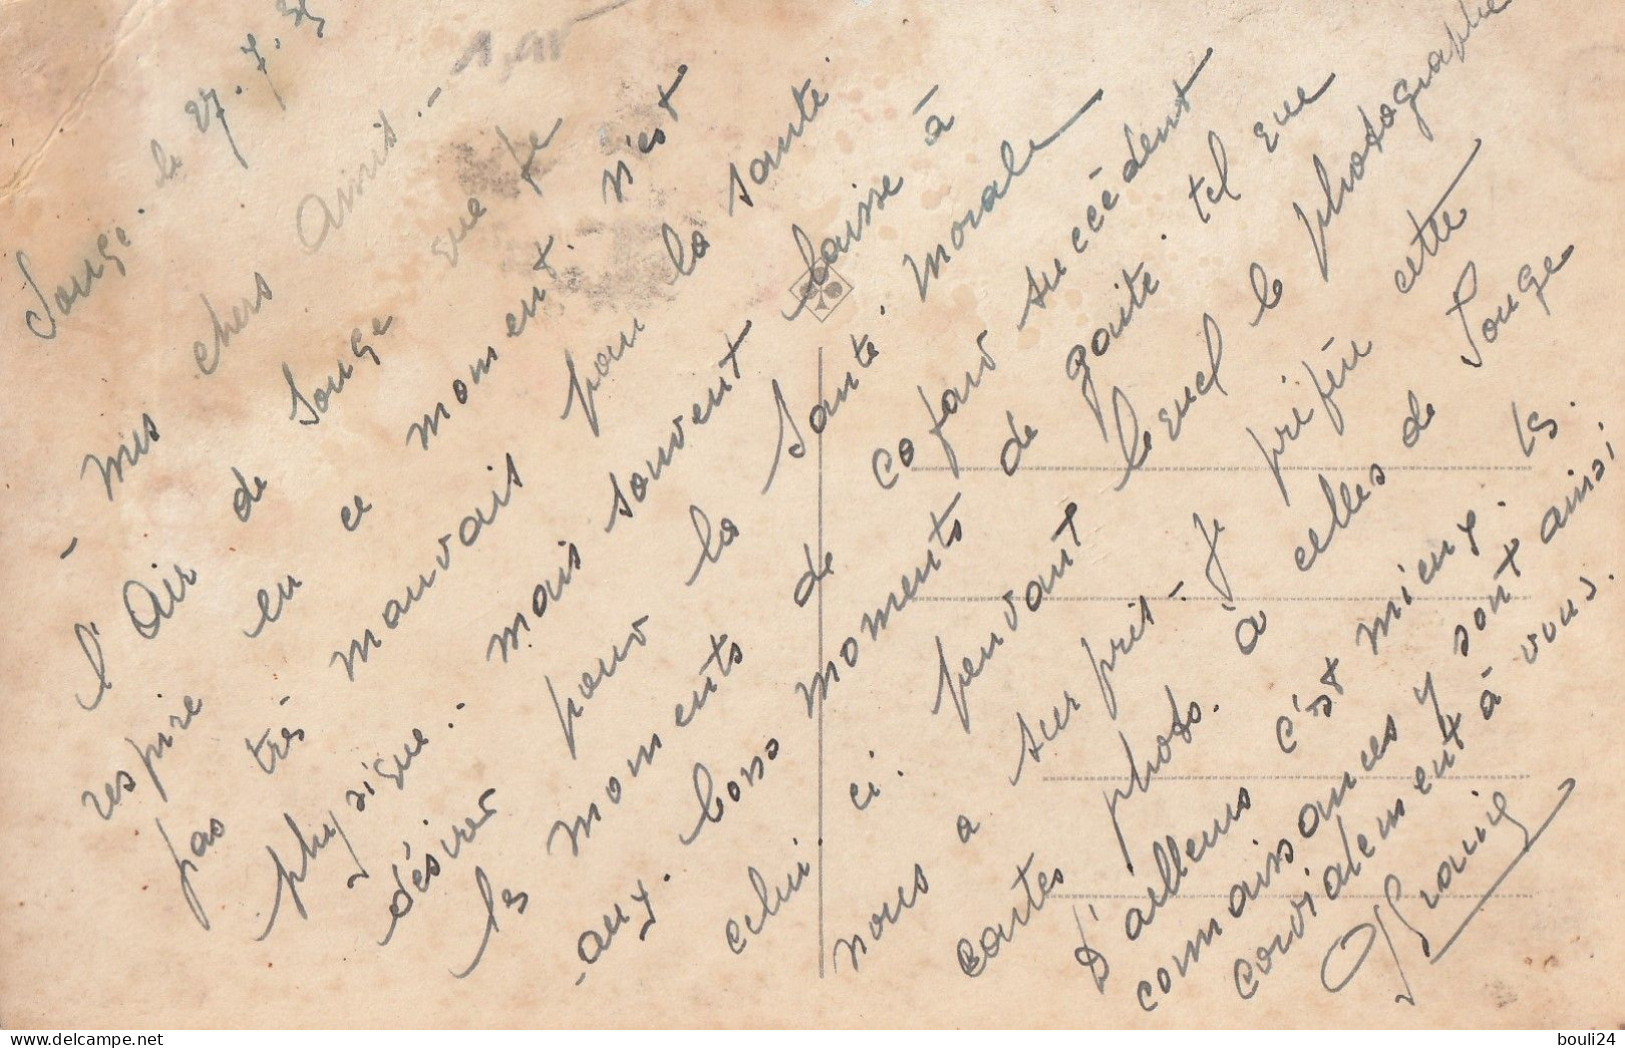 Souge. le 27.7.35
- Mes chers Amis.-
l'Air de Souge que je
respire en ce moment. n'est
pas très mauvais pour la santé
physique.- mais souvent laisse à
désirer pour la santé. morale
les moments de cafard succèdent
aux. bons moments de gaité. tel que
celui ci. pendant lequel le photographe
nous a surpris - Je préfère cette
cartes photo. à celles de Souge
D'ailleurs c'est mieux. les
connaissances y sont ainsi
cordialement à vous.
bouli24